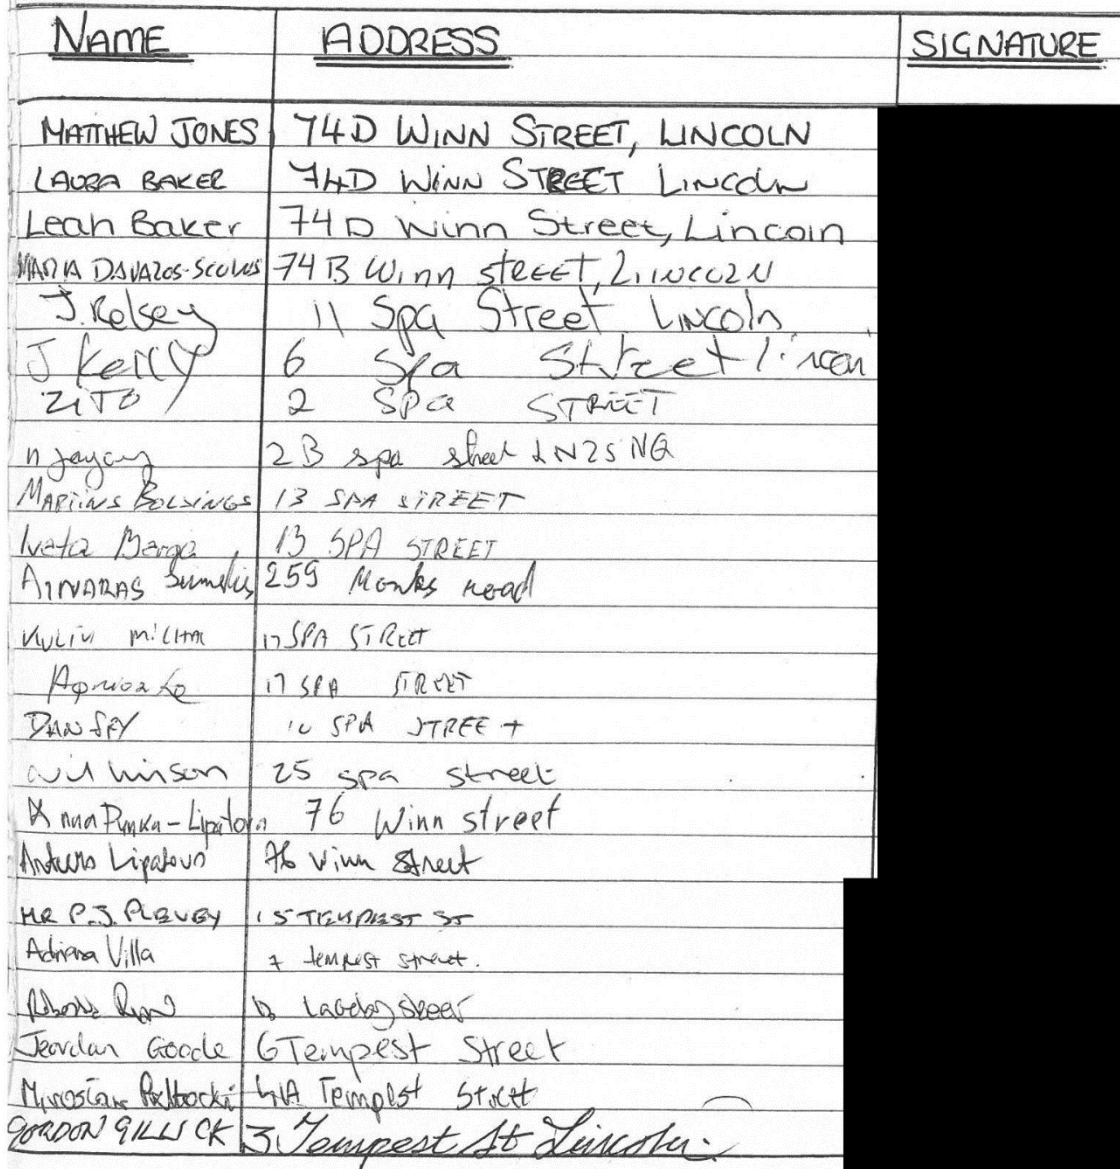 NAME ADDRESS SIGNATURE
MATTHEW JONES 74D WINN STREET, LINCOLN
LAURA BAKER 74D WINN STREET LINCOLN
Leah Baker 74D Winn Street, Lincoln
MARIA 74B Winn streeT, LiINCOLN
J. Kelsey 11 Spa Street Lincoln
J Kelly 6 Spa Street lincoln
ZITO 2 SPa STREET
2B spa street LN25NQ
MARTINS 13 SPA STREET
Iveta Berga 13 SPA STREET
AINARAS 259 Monks road
SPA STREET
17 SPA STREET
SPA STREET
wilkinson 25 spa street
Anna Punka-Lipatova 76 Winn street
Lipatovs 76 Winn Street
MR P.J. TEMPEST ST
Adriana Villa 7 tempest street.
street
Jeordan Goode 6 Tempest Street
41A Tempest Street
GORDON GILLICK 3. Tempest St Lincoln.